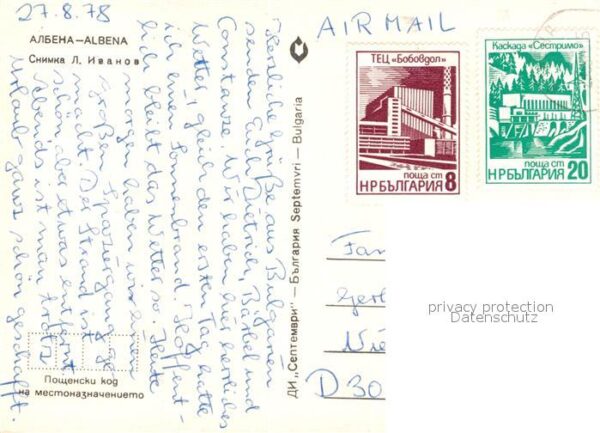 27.8.78
АЛБЕНА—ALBENA
Снимка Л. Иванов
Herzliche Grüße aus Bulgarien
senden Euch Dietrich, Bärbel und
Constanze. Wir haben hier herrliches
Wetter, gleich den ersten Tag hatte
ich einen Sonnenbrand. Hoffent-
lich bleibt das Wetter so. Heute
morgen haben wir einen
großen Spaziergang ge-
macht. Der Strand ist
schön, aber etwas entfernt
abends ist man trotz
Urlaub ganz schön geschafft.
Пощенски код
на местоназначението
ДИ „Септември" — България Septemvri — Bulgaria
AIR MAIL
ТЕЦ «Бобовдол»
поща ст
НРБЪЛГАРИЯ 8
Каскада «Сестримо»
поща ст
НРБЪЛГАРИЯ 20
Fam
Ger
Nie
D 30
privacy protection
Datenschutz